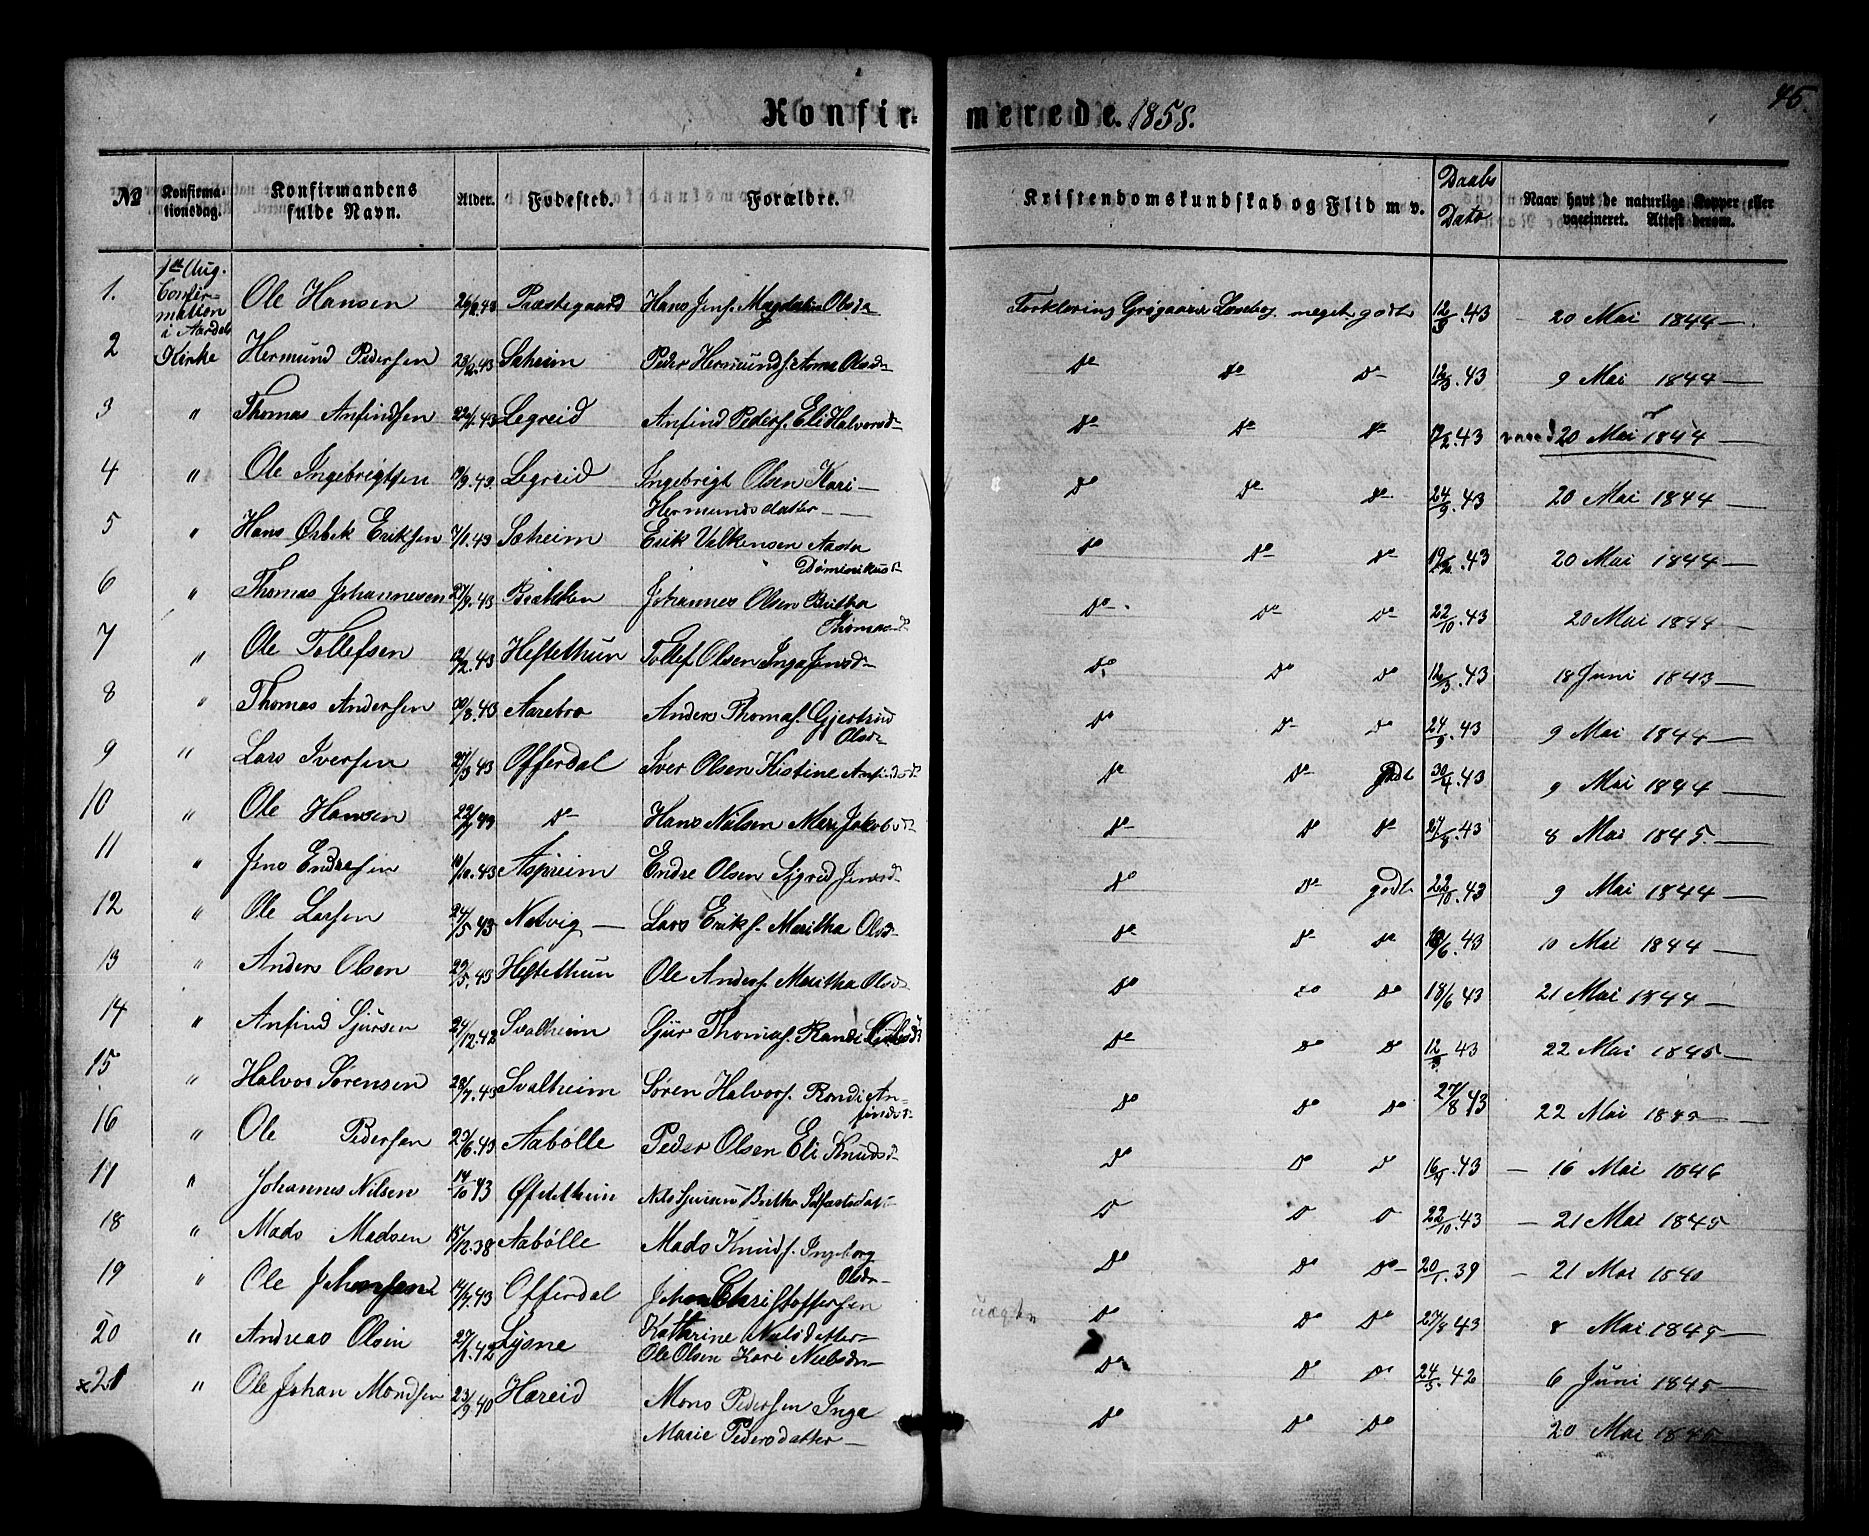 45.
Konfir- merede. 1858.
No Konfirmationsdag. Konfirmandens fulde Navn. Alder. Fødested. Forældre. Kristendomskundskab og Flid m v. Daabs Dato Naar havt de naturlige Kopper eller vaccineret. Attest derom.
1. 1ste Aug. Confirmation i Aardals Kirke Ole Hansen Præstegaard Hans Jensf. Magdalin Olsda Forklaring Grøgaards Læsebog meget godt 12/3.43 20 Mai 1844
2 Hermund Pedersen Sæheim Peder Hermundsf. Anna Olsd. Do Do Do 12/3.43 9 Mai 1844
3 " Thomas Anfindsen Legreid Anfind Pedersf. Eli Halvorsd. Do Do Do 43 20 Mai 1844
4 " Ole Ingebrigtsen Legreid Ingebrigt Olsen Kari Hermundsdatter Do Do Do 24/9.43 20 Mai 1844
5 " Hans Eriksen Sæheim Erik Do Do Do 43 20 Mai 1844
6 " Thomas Johannesen 27/9.43 Johannes Olsen Britha Thomasd. Do Do Do 22/10.43 20 Mai 1844
7 " Ole Tollefsen Hestethun Tollef Olsen Inga Jensd. Do Do Do 12/3.43 18 Juni 1843
8 " Thomas Andersen Aarebro Anders Thomasf. Gjertrud Olsd. Do Do Do 24/9.43 9 Mai 1844
9 " Lars Iversen Offerdal Iver Olsen Kistine Anfindsd. Do Do godt 30/4.43 9 Mai 1844
10 " Ole Hansen Do Hans Nilsen Mari Jakobsd. Do Do Do 27/8.43 8 Mai 1845
11 " Jens Endresen Aspreim Endre Olsen Sigrid Jensd. Do Do godt 22/10.43 9 Mai 1844
12 " Ole Larsen 24/5.43 Natvig Lars Eriksf. Maritha Olsd. Do Do Do 18/6.43 10 Mai 1844
13 " Anders Olsen Hestethun Ole Andersf. Maritha Olsd. Do Do Do 18/6 43 21 Mai 1844
14 " Anfind Sjursen 24/12.42 Svalheim Sjur Thomasf. Randi Do Do Do 12/3 43 22 Mai 1845
15 " Halvor Sørensen 28/7.43 Svalheim Søren Halvorsf. Randi Anfindsd. Do Do Do 27/8 43 22 Mai 1845
16 " Ole Pedersen Aabølle Peder Olsen Eli Knudsd. Do Do Do 43 16 Mai 1846
17 " Johannes Nilsen 14/10 43 Nils Sjursen Britha Do Do Do 22/10.43 21 Mai 1845
18 " Mads Madsen 15/12.38 Aabølle Mads Knudsf. Ingeborg Olsd. Do Do Do 20/1.39 21 Mai 1840
19 " Ole Johansen 14/7.43 Offerdal Johan Christoffersen Kathrine Nielsdatter uægte Do Do Do 27/8 43 8 Mai 1845
20 " Andreas Olsen Lysne Ole Olsen Kari Nielsd. Do Do Do 24/5.42 6 Juni 1845
x21 " Ole Johan Mondsen 23/9.40 Hæreid Mons Pedersen Inga Marie Pedersdatter Do Do Do 20 Mai 1845